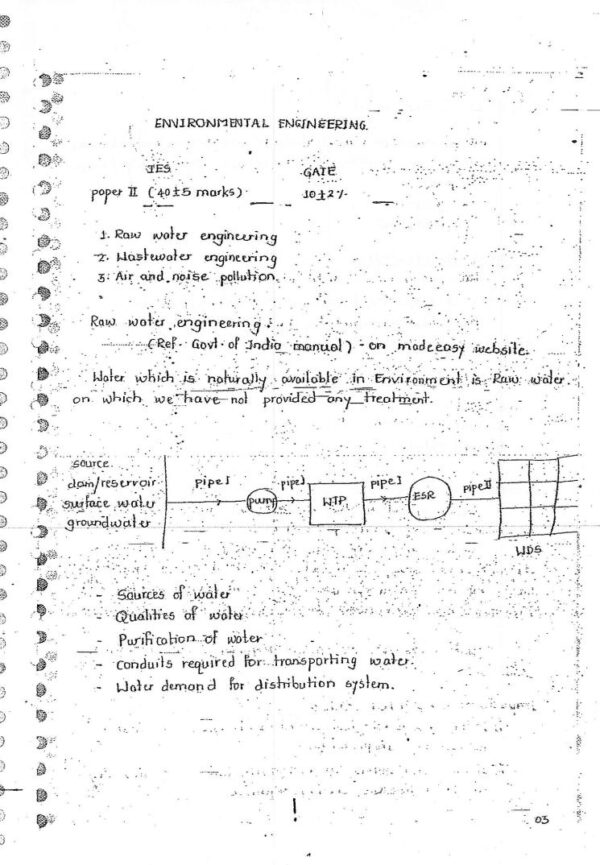 ENVIRONMENTAL ENGINEERING.
IES GATE
paper II (40±5 marks). 10±2%
1. Raw water engineering
2. Wastewater engineering
3. Air and noise pollution.
Raw water engineering :
(Ref. Govt. of India manual) - on madeeasy website.
Water which is naturally available in Environment is Raw water.
on which we have not provided any treatment.
source
dam/reservoir
surface water
groundwater
pipe I pump pipe I WTP pipe I ESR pipe II
WDS
- Sources of water
- Qualities of water
- Purification of water
- conduits required for transporting water.
- Water demand for distribution system.
03